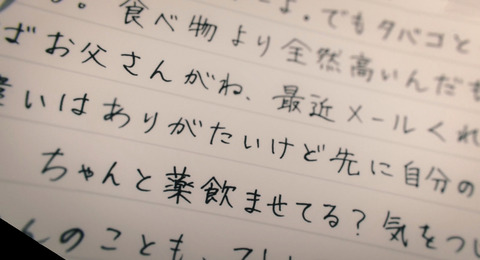 。食べ物より全然高いんだも
でもタバコと
ざお父さんがね、最近メールくれ
遣いはありがたいけど先に自分の
ちゃんと薬飲ませてる?気をつ
んのことも、